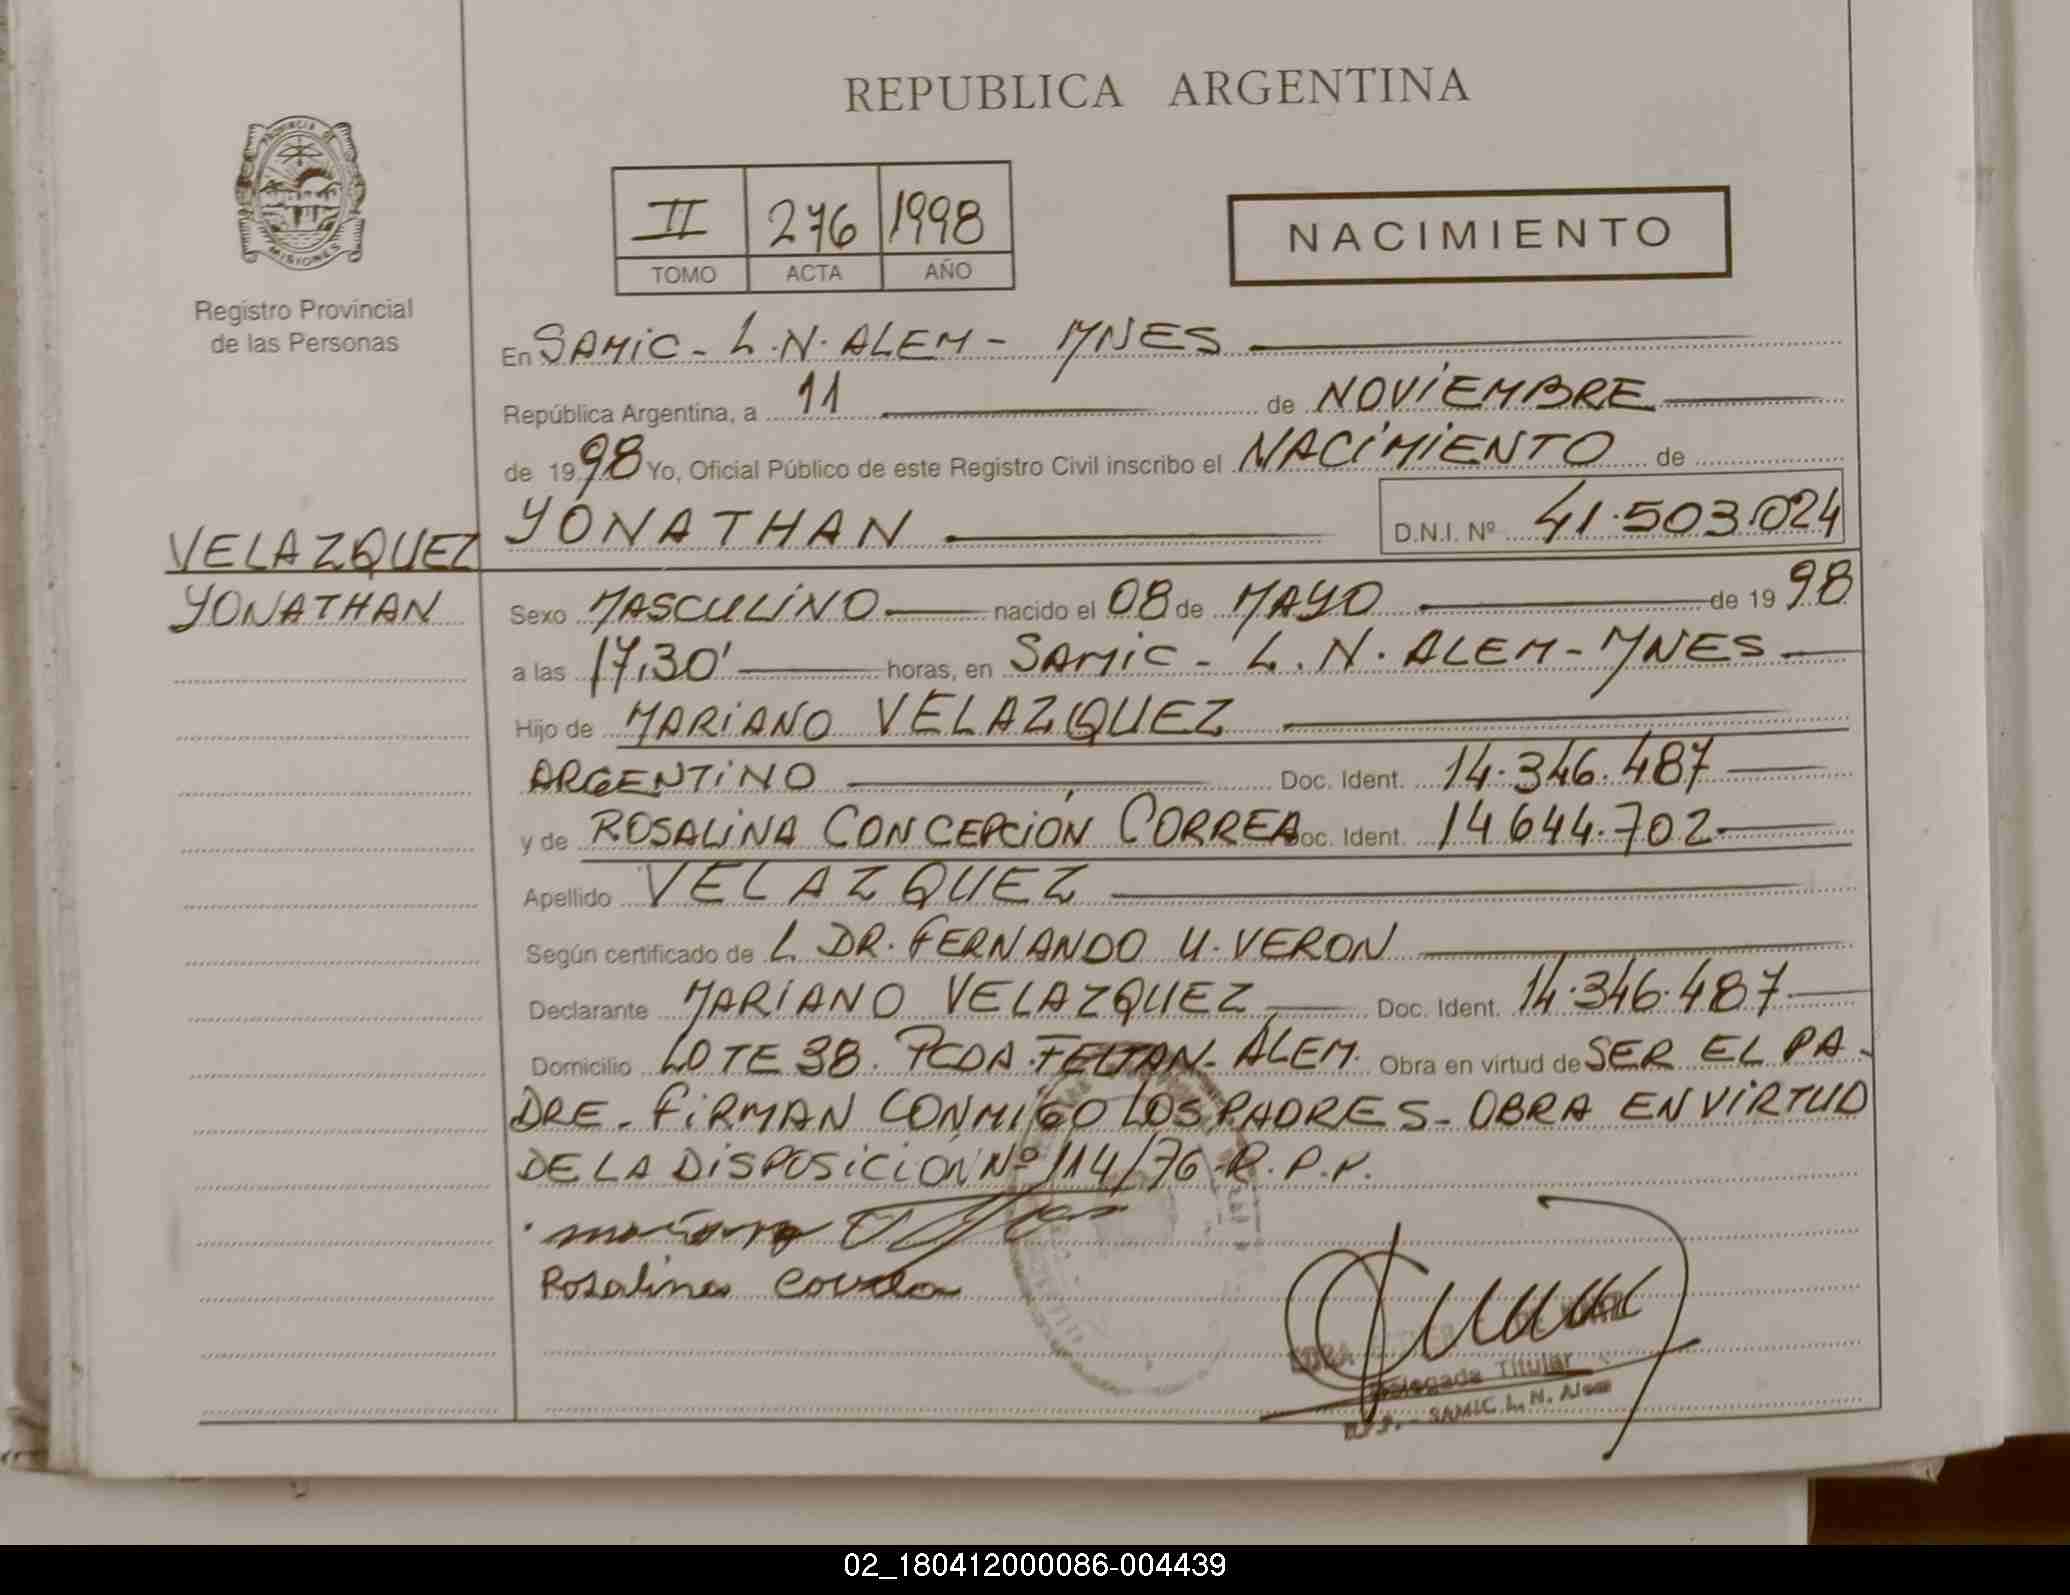 REPUBLICA ARGENTINA
PROVINCIA DE MISIONES
Registro Provincial
de las Personas
II 276 1998
TOMO ACTA AÑO
NACIMIENTO
En SAMIC - L.N. ALEM - MNES
República Argentina, a 11 de NOVIEMBRE
de 1998 Yo, Oficial Público de este Registro Civil inscribo el NACIMIENTO de
YONATHAN D.N.I. Nº 41.503.024
VELAZQUEZ
YONATHAN
Sexo MASCULINO nacido el 08 de MAYO de 1998
a las 17,30' horas, en SAMIC - L.N. ALEM - MNES
Hijo de MARIANO VELAZQUEZ
ARGENTINO Doc. Ident. 14.346.487
y de ROSALINA CONCEPCIÓN CORREA Doc. Ident. 14.644.702
Apellido VELAZQUEZ
Según certificado de L DR. FERNANDO U. VERON
Declarante MARIANO VELAZQUEZ Doc. Ident. 14.346.487
Domicilio LOTE 38. PCDA. FELTAN - ALEM. Obra en virtud de SER EL PA-
DRE. FIRMAN CONMIGO LOS PADRES - OBRA EN VIRTUD
DE LA DISPOSICIÓN Nº 114/76 R.P.P.
Rosalina Correa
Delegada Titular
R.P.P. - SAMIC L. N. Alem
02_180412000086-004439